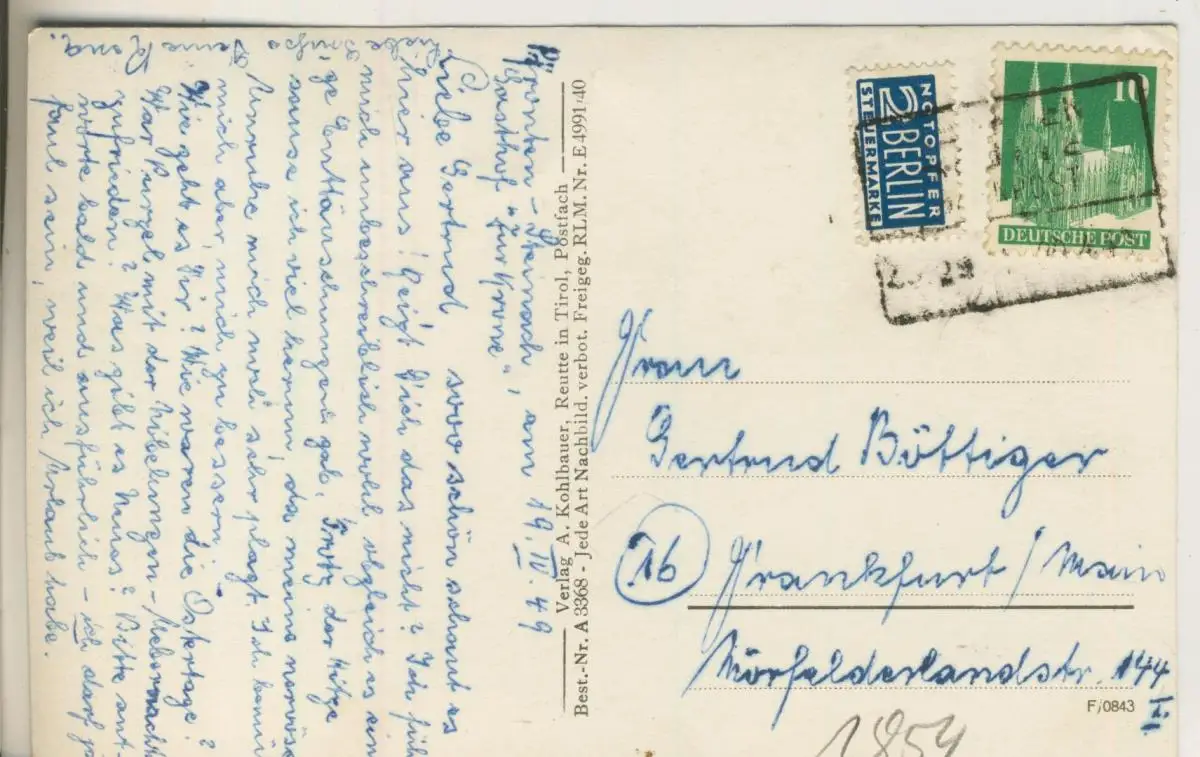 Pfronten-Steinach, am 19.IV.49
Gasthof "zur Krone"
Liebe Gertrud, sooo schön schaut es
hier aus! Geigt Dich das nicht? Ich füh
mich unbeschreiblich wohl obgleich es ein
ge Enttäuschungen gab. Trotz der Hitze
sause ich viel herum, da meine nervöse
Unruhe mich noch sehr plagt. Ich bemü
mich aber mich zu bessern.
Wie geht es Dir? Wie waren die Ostertage?
War Purzel mit der Nibelungen-
zufrieden? Was gibt es Neues? Bitte ant-
worte bald und ausführlich - ich darf ja
faul sein, weil ich Urlaub habe.
Liebe Grüße
Deine Rena.
Verlag A. Kohlbauer, Reutte in Tirol, Postfach
Best.-Nr. A 3368 - Jede Art Nachbild. verbot. Freigeg. RLM. Nr. E 4991/40
NOTOPFER
2 BERLIN
STEUERMARKE
10
DEUTSCHE POST
Frau
Gertrud Böttiger
16 Frankfurt/Main
Mörfelderlandstr. 144 I.
F/0843
1854